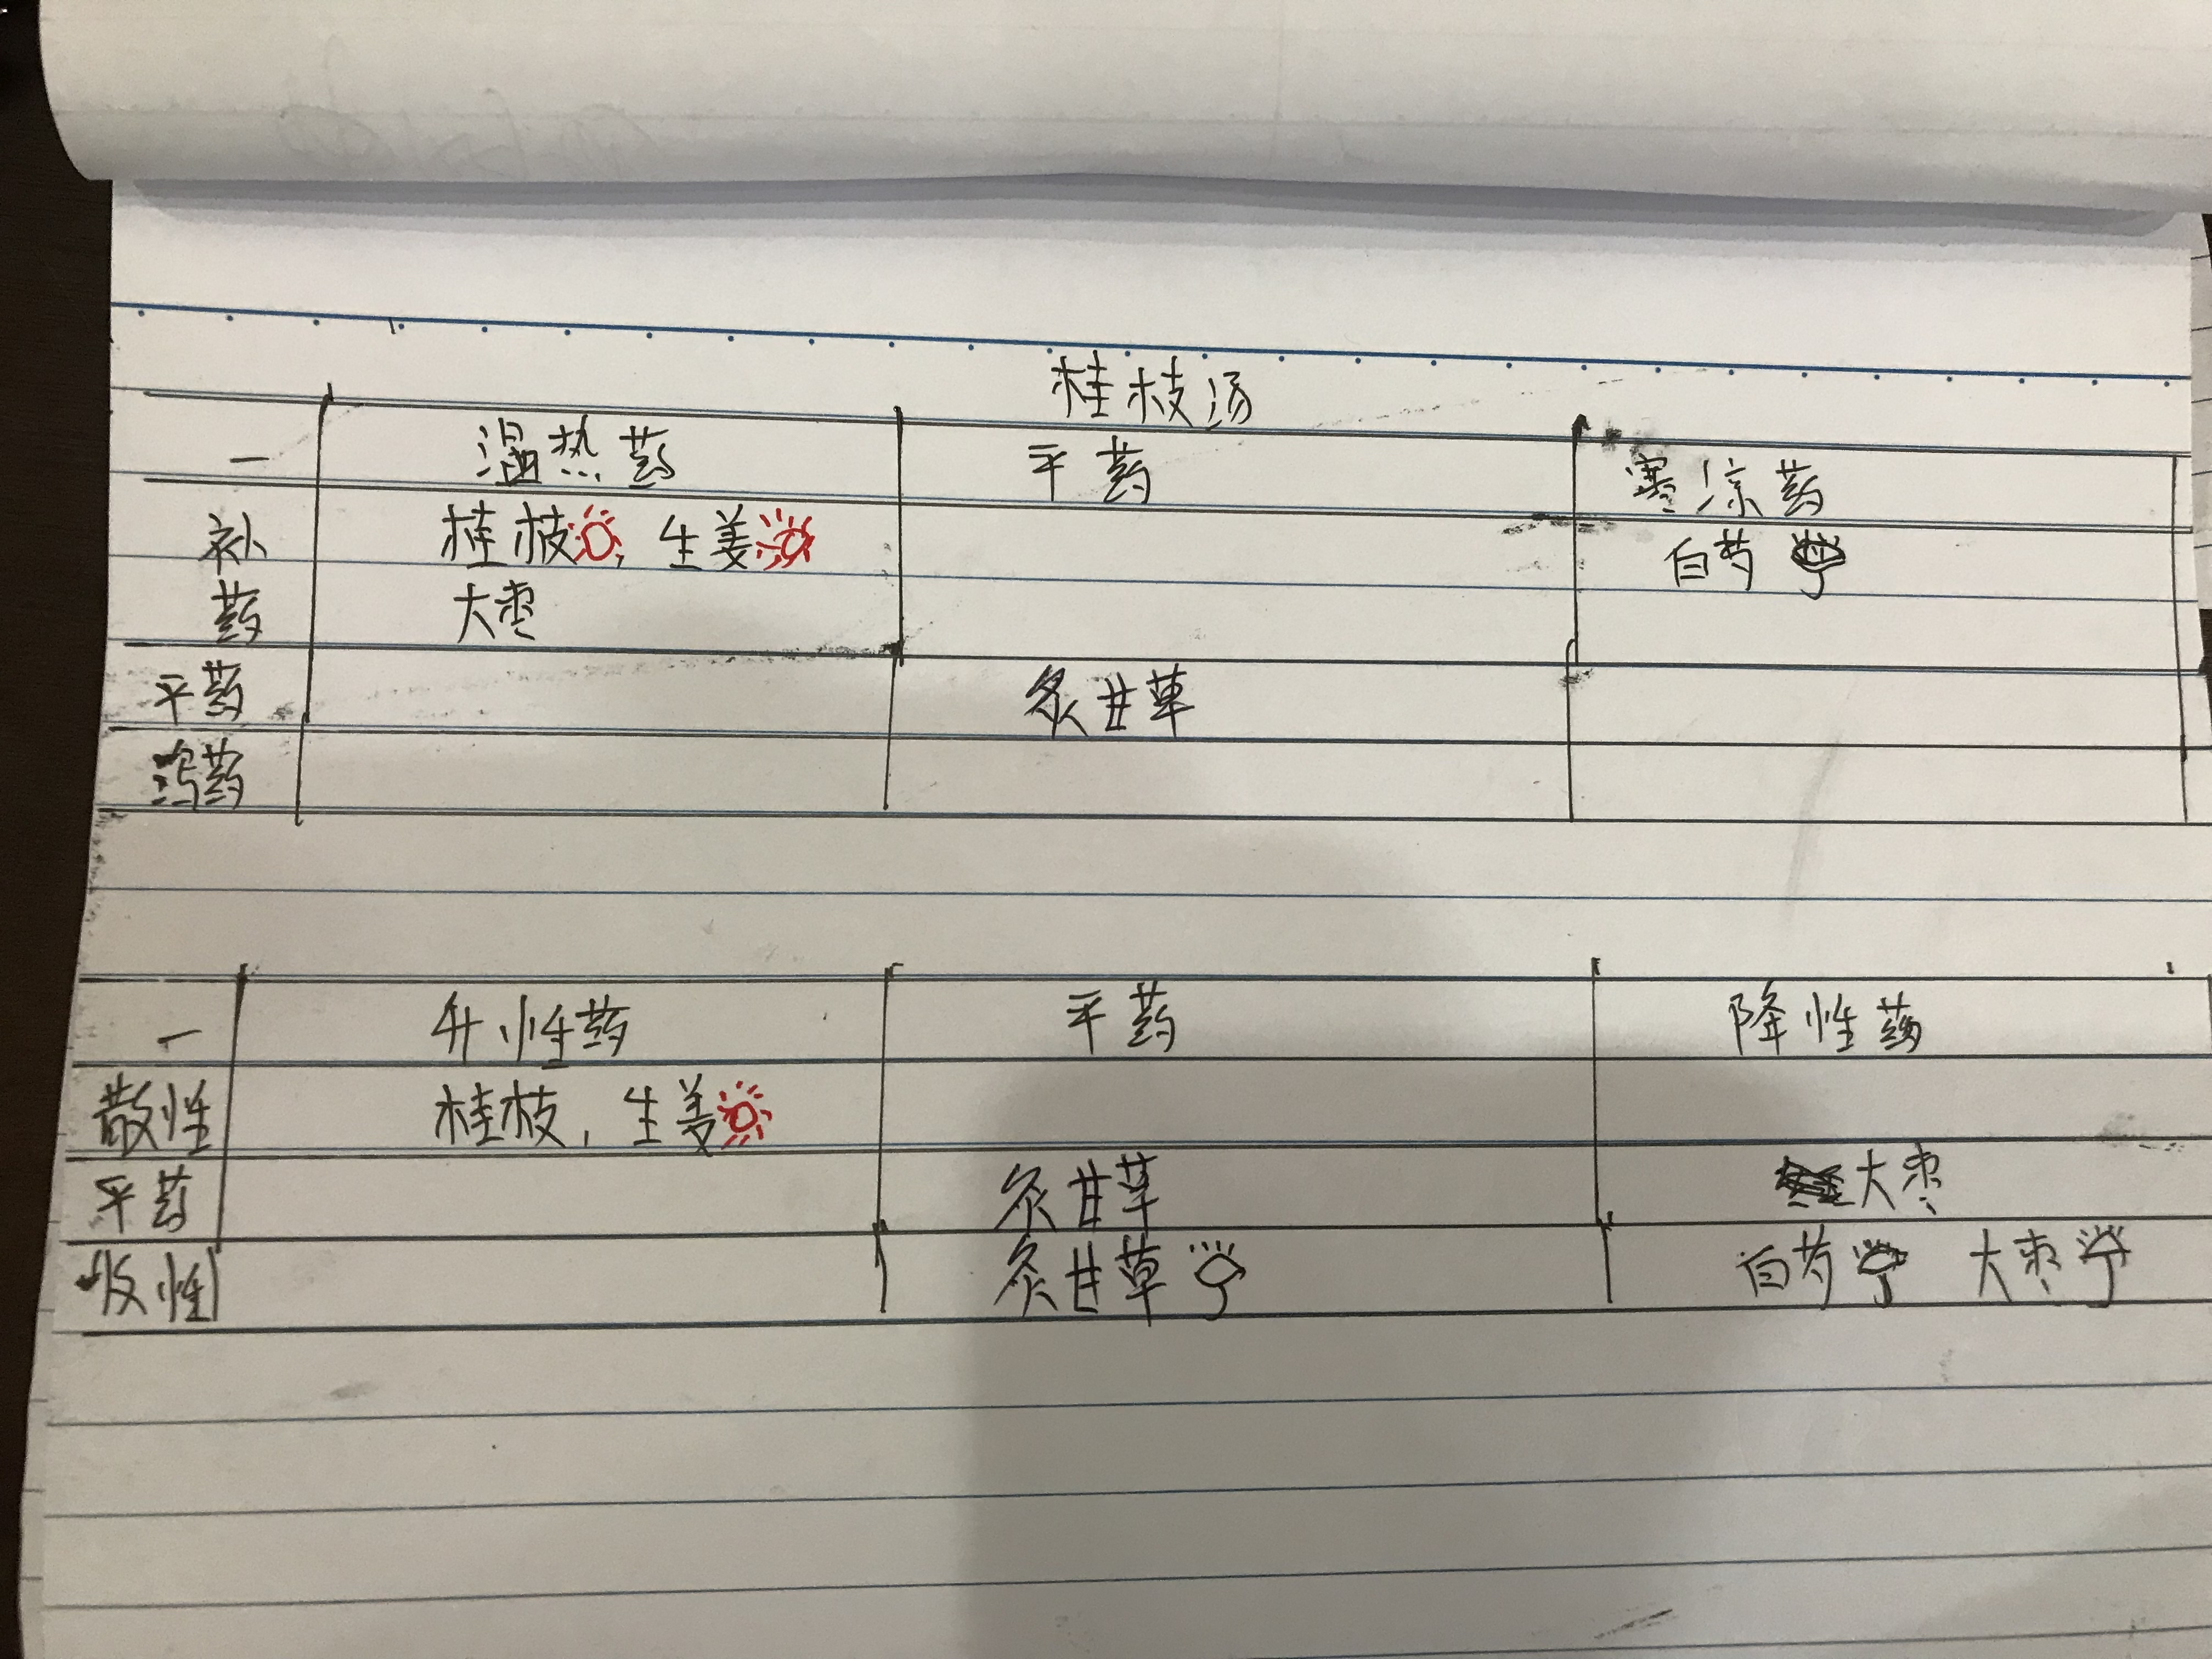 桂枝汤
一 温热药 平药 寒凉药
补 桂枝, 生姜 白芍
药 大枣
平药 炙甘草
泻药
一 升性药 平药 降性药
散性 桂枝, 生姜
平药 炙甘草 大枣
收性 炙甘草 白芍 大枣